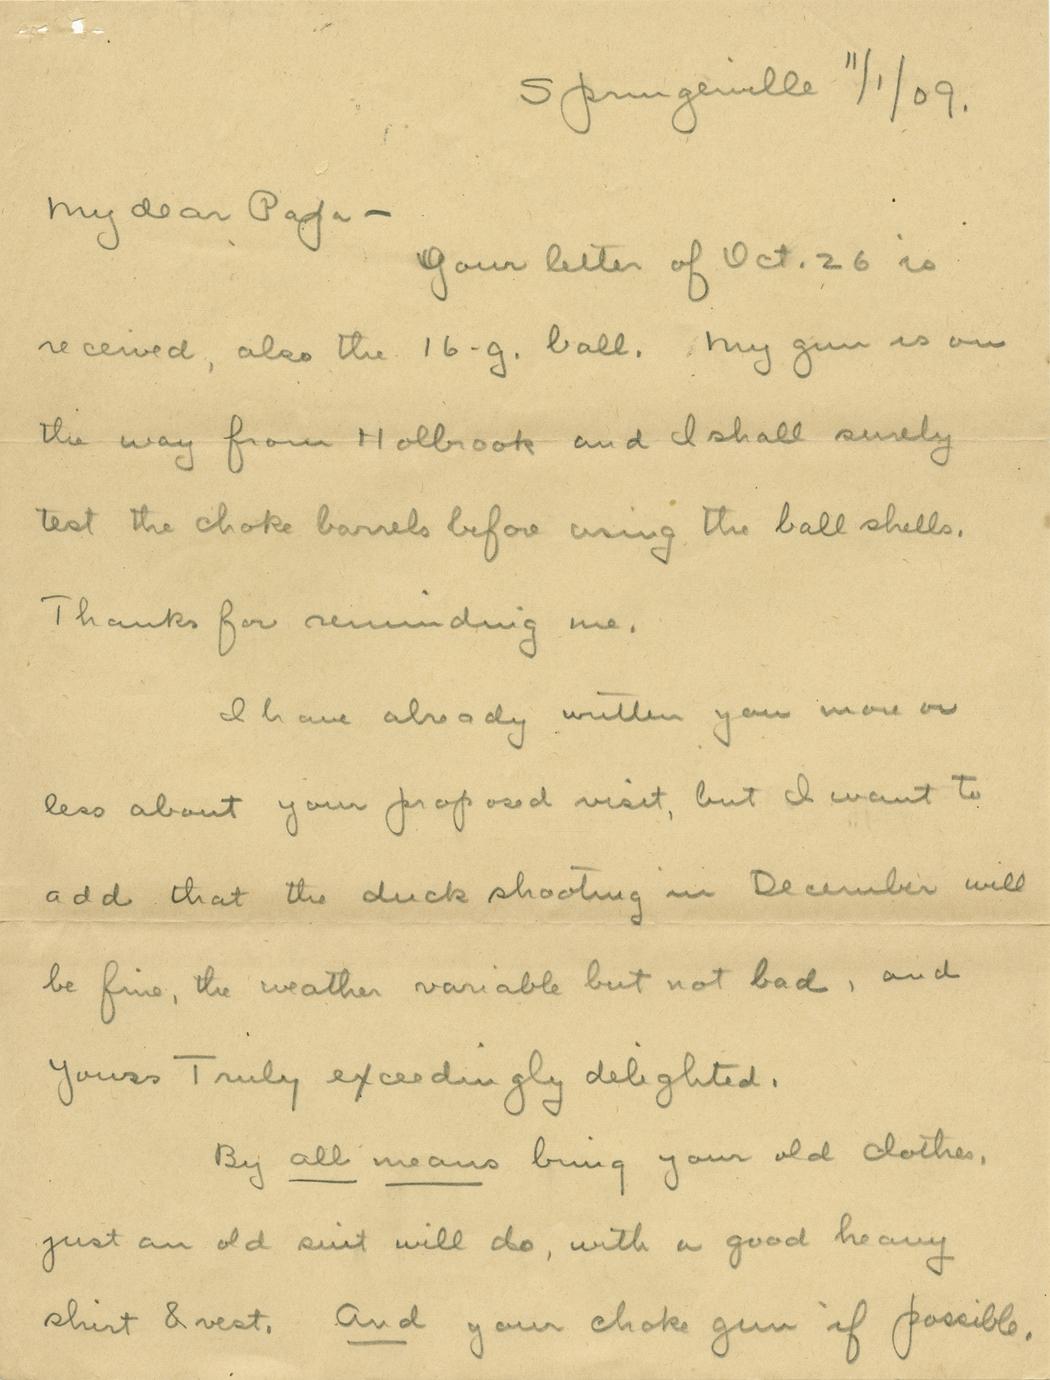 Springerville 11/1/09.
My dear Papa —
Your letter of Oct. 26 is
received, also the 16-g. ball. My gun is on
the way from Holbrook and I shall surely
test the choke barrels before using the ball shells.
Thanks for reminding me.
I have already written you more or
less about your proposed visit, but I want to
add that the duck shooting in December will
be fine, the weather variable but not bad, and
Yours Truly exceedingly delighted.
By all means bring your old clothes,
just an old suit will do, with a good heavy
shirt & vest. And your choke gun if possible.